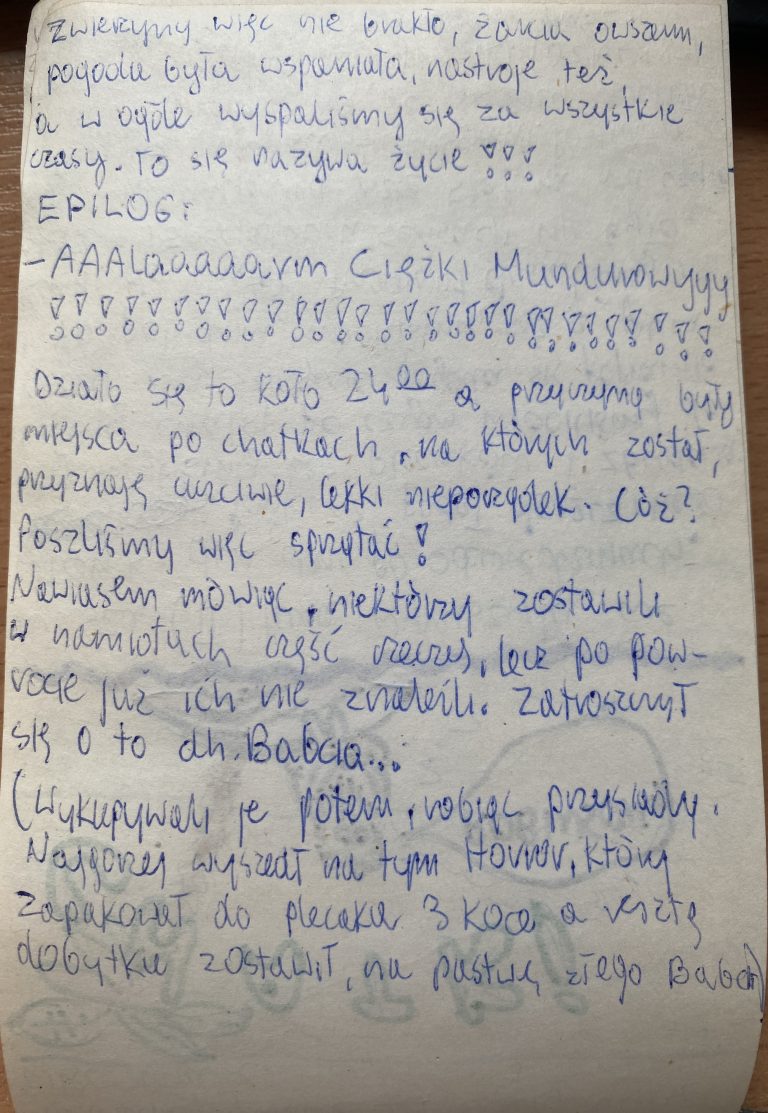 zwierzyny więc nie brakło, żarcia owszem,
pogoda była wspaniała, nastroje też,
a w ogóle wyspaliśmy się za wszystkie
czasy. To się nazywa życie !!!
EPILOG:
- AAALaaaaarm Ciężki Mundurowyyy
!!!!!!!!!!!!!!!!!!!!!!!!!!!!
Działo się to koło 24 00 a przyczyną były
miejsca po chatkach, na których został,
przyznaję uczciwie, lekki nieporządek. Cóż?
Poszliśmy więc sprzątać!
Nawiasem mówiąc, niektórzy zostawili
w namiotach część rzeczy, lecz po pow-
rocie już ich nie znaleźli. Zatroszczył
się o to dh. Babcia...
(Wykupywali je potem, robiąc przysiady.
Najgorzej wyszedł na tym Horror, który
zapakował do plecaka 3 koce a resztę
dobytku zostawił, na pastwę złego Babci)